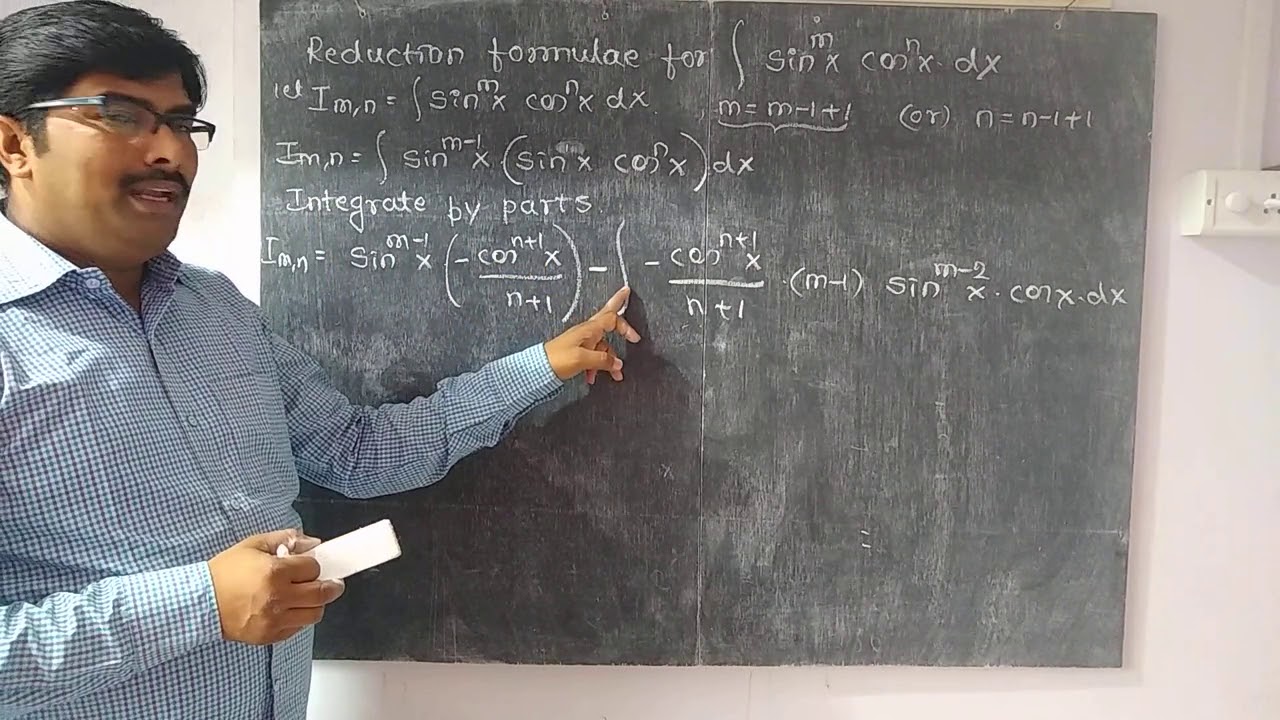 Reduction formulae for ∫ sin^m x cos^n x. dx
let I_{m,n} = ∫ sin^m x cos^n x dx. m = m-1+1 (or) n = n-1+1
I_{m,n} = ∫ sin^{m-1} x. (sin x cos^n x) dx
Integrate by parts.
I_{m,n} = sin^{m-1} x (- cos^{n+1} x / n+1) - ∫ - cos^{n+1} x / n+1 . (m-1) sin^{m-2} x. cos x. dx